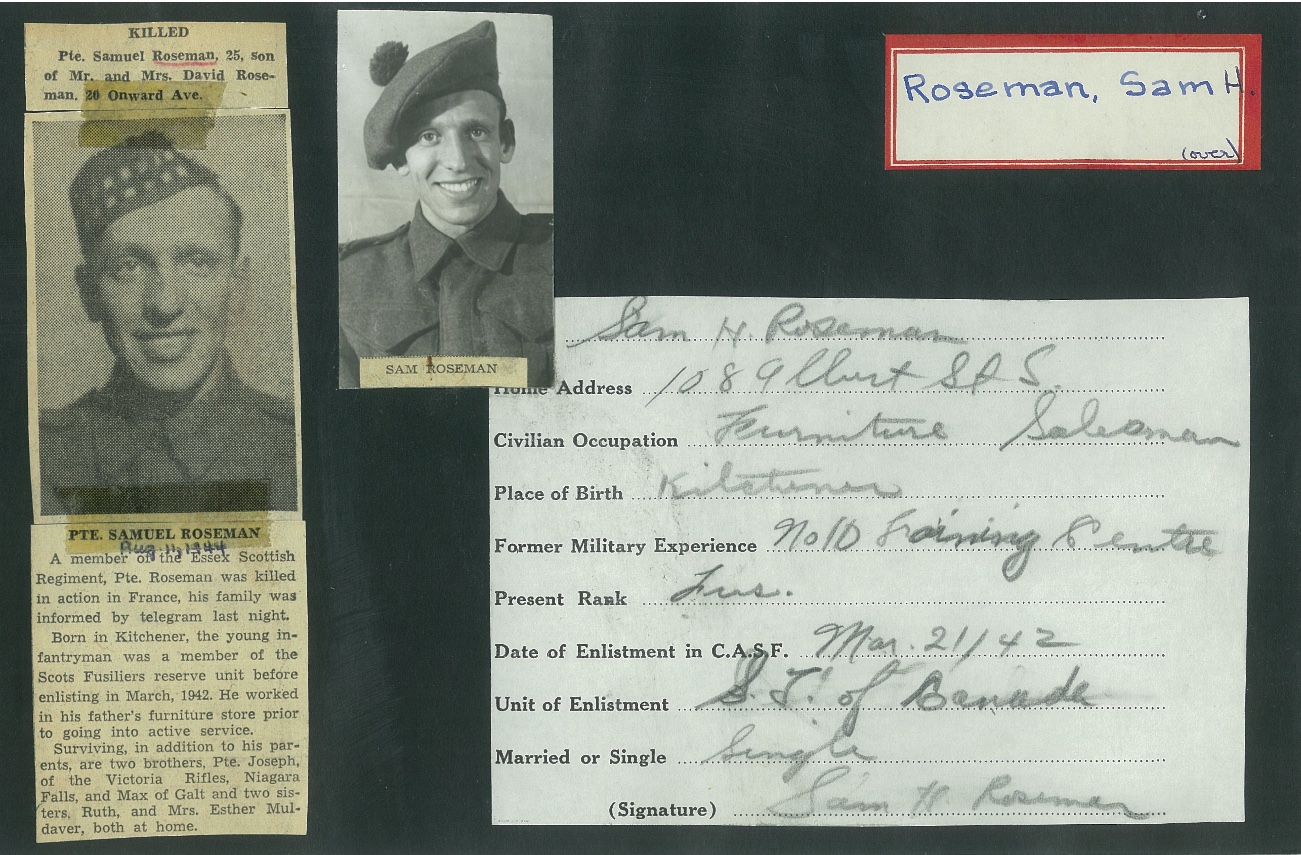 KILLED
Pte. Samuel Roseman, 25, son
of Mr. and Mrs. David Rose-
man, 20 Onward Ave.
PTE. SAMUEL ROSEMAN
Aug. 11, 1944
A member of the Essex Scottish
Regiment, Pte. Roseman was killed
in action in France, his family was
informed by telegram last night.
Born in Kitchener, the young in-
fantryman was a member of the
Scots Fusiliers reserve unit before
enlisting in March, 1942. He worked
in his father's furniture store prior
to going into active service.
Surviving, in addition to his par-
ents, are two brothers, Pte. Joseph,
of the Victoria Rifles, Niagara
Falls, and Max of Galt and two sis-
ters, Ruth, and Mrs. Esther Mul-
daver, both at home.
SAM ROSEMAN
Roseman, Sam H.
(over)
Sam H. Roseman
Home Address 108 Albert St S.
Civilian Occupation Furniture Salesman
Place of Birth Kitchener
Former Military Experience No10 Training Centre
Present Rank Fus.
Date of Enlistment in C.A.S.F. Mar. 21/42
Unit of Enlistment S. F. of Canada
Married or Single Single
(Signature) Sam H. Roseman